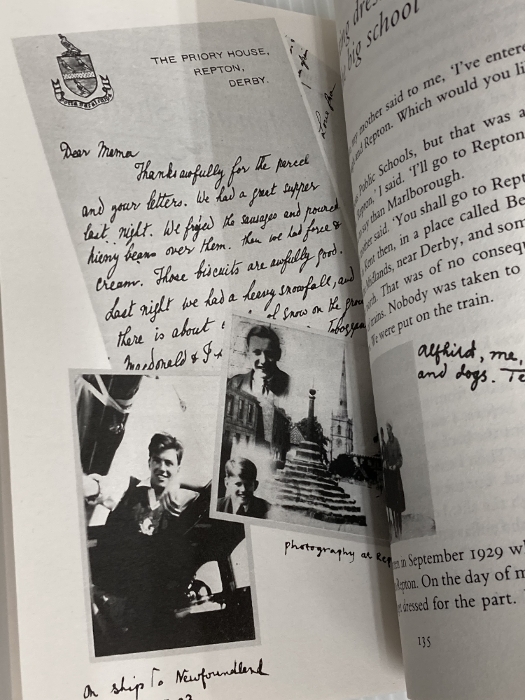 THE PRIORY HOUSE,
REPTON,
DERBY.
Dear Mama
Thanks awfully for the parcel
and your letters. We had a great supper
last night. We fryed the sausages and poured
hieny beans over them. Then we had force &
cream. Those biscuits are awfully good.
Last night we had a heavy snowfall, and
there is about
of snow on the
Macdonald & I
Love from
photography at Rep
On ship to Newfoundland
big school
my mother said to me, 'I've entered
and Repton. Which would you li
Public Schools, but that was a
Repton,' I said. 'I'll go to Repton
say than Marlborough.
said. 'You shall go to Rept
Kent then, in a place called Be
Midlands, near Derby, and som
north. That was of no consequ
trains. Nobody was taken to
We were put on the train.
Alfhild, me,
and dogs. Te
in September 1929 w
Repton. On the day of m
dressed for the part.
135